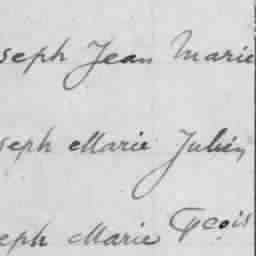 seph Jean Marie
seph Marie Julien
eph Marie